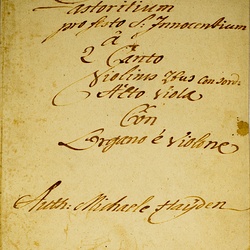 Pastoritium
pro festo S. Innocentium
à
2 Canto
Violinis 2bus con sord:
Alto Viola
Con
Organo è Violone
Auth: Michaele Hayden